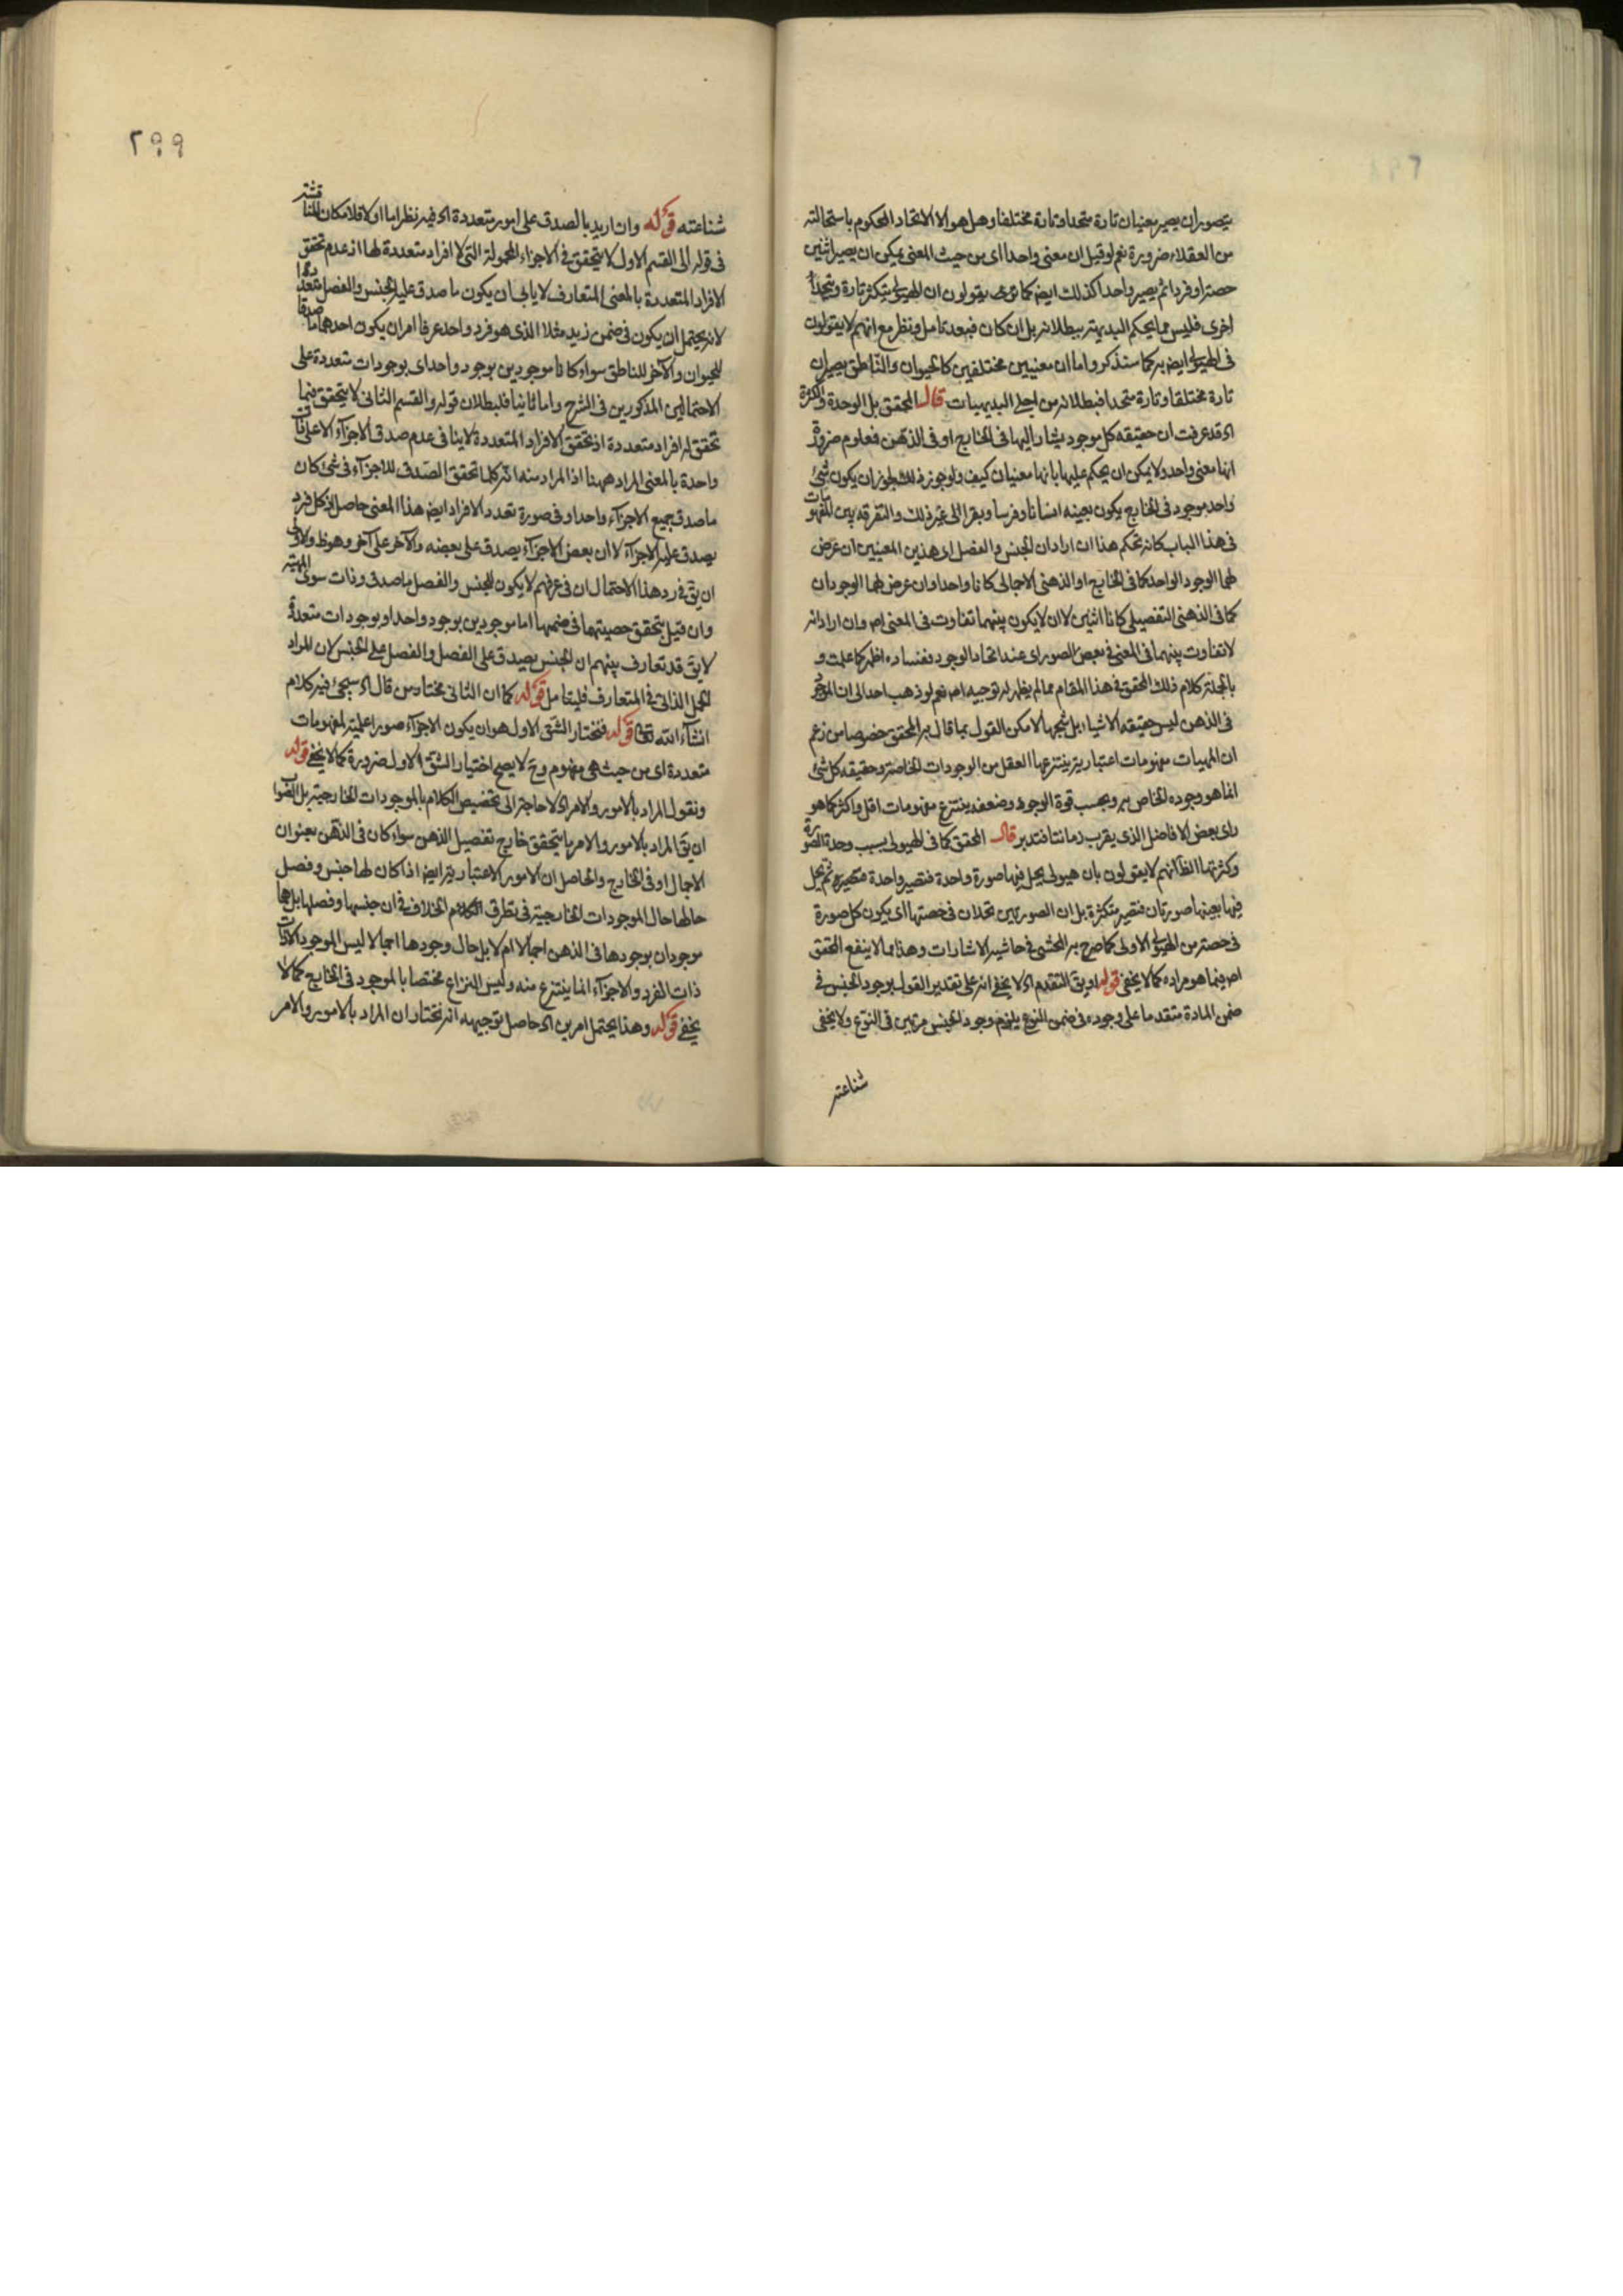 يتصور ان يصير معنيان تارة متحدا وتارة مختلفا وهل هو الا الاتحاد المحكوم باستحالته
من العقلاء ضرورة نعم لو قيل ان معنى واحدا اى من حيث المعنى يمكن ان يصير اثنين
حصتا او فردا ثم يصير واحدا كذلك ايضا كما يقولون ان الهيولى يتكثر تارة ويتحد
اخرى فليس مما يحكم البديهة ببطلانه بل ان كان فبعد تامل ونظر مع انهم لا يقولون
فى الهيولى ايضا به كما سنذكر واما ان معنيين مختلفين كالحيوان والناطق يصيران
تارة مختلفا وتارة متحدا فبطلانه من اجلى البديهيات قال المحقق بل الوحدة والكثرة
اه قد عرفت ان حقيقة كل موجود يشار اليها فى الخارج او فى الذهن فمعلوم ضرورة
انها معنى واحد ولا يمكن ان يحكم عليها بانها معنيان كيف ولو جوز ذلك لجاز ان يكون شئ
واحد موجود فى الخارج يكون بعينه انسانا وفرسا وبقرا الى غير ذلك والتفرقة بين المفهومات
فى هذا الباب كانه تحكم هذا ان اراد ان الجنس والفصل اى هذين المعنيين ان عرض
لهما الوجود الواحد كما فى الخارج او الذهنى الاجمالى كانا واحدا وان عرض لهما الوجودان
كما فى الذهنى التفصيلى كانا اثنين لا ان لا يكون بينهما تفاوت فى المعنى اه وان اراد انه
لا تفاوت بينهما فى المعنى فى بعض الصور اى عند اتحاد الوجود ففساده اظهر كما علمت و
بالجملة كلام ذلك المحقق فى هذا المقام مما لم يظهر له توجيه اه نعم لو ذهب احد الى ان الموجود
فى الذهن ليس حقيقة الاشياء بل شبحها لامكن القول بما قال به المحقق خصوصا من زعم
ان المهيات مفهومات اعتبارية ينتزعها العقل من الوجودات الخاصة وحقيقة كل شئ
انما هو وجوده الخاص به وبحسب قوة الوجود وضعفه ينتزع مفهومات اقل واكثر كما هو
راى بعض الافاضل الذى يقرب زماننا فتدبر قال المحقق كما فى الهيولى بسبب وحدة الصورة
وكثرتها الظ انهم لا يقولون بان هيولى يحل فيها صورة واحدة فتصير واحدة متصيرة ثم يحل
فيها بعينها صورتان فتصير متكثرة بل ان الصورتين تحلان فى حصتها اى يكون كل صورة
فى حصة من الهيولى الاولى كما صرح به المحشى فى حاشية الاشارات وهذا مما لا ينفع المحقق
اه فيما هو مراده كما لا يخفى قوله او يق التقدم اه لا يخفى انه على تقدير القول بوجود الجنس فى
ضمن المادة متقدما على وجوده فى ضمن النوع يلزم وجود الجنس مرتين فى النوع ولا يخفى
شناعته
٢٩٩
شناعته قوله وان اريد بالصدق على امور متعددة اه فيه نظر اما اولا فلامكان المناقشة
فى قوله الى القسم الاول لا يتحقق فى الاجزاء المحمولة التى لا افراد متعددة لها اذ عدم تحقق
الافراد المتعددة بالمعنى المتعارف لا يابى ان يكون ما صدق عليه الجنس والفصل متعددا
لانه يحتمل ان يكون فى ضمن زيد مثلا الذى هو فرد واحد عرفا امران يكون احدهما ما صدقا
للحيوان والآخر للناطق سواء كانا موجودين بوجود واحد اى بوجودات متعددة على
الاحتمالين المذكورين فى الشرح واما ثانيا فلبطلان قوله والقسم الثانى لا يتحقق فيما
تحقق له افراد متعددة اذ تحقق الافراد المتعددة لا ينافى عدم صدق الاجزاء الا على ذات
واحدة بالمعنى المراد ههنا اذ المراد منه انه كلما تحقق الصدق للاجزاء فى شئ كان
ما صدق جميع الاجزاء واحدا وفى صورة تعدد الافراد ايضا هذا المعنى حاصل اذ كل فرد
يصدق عليه الاجزاء لا ان بعض الاجزاء يصدق على بعضه والآخر على آخر وهو ظ والاولى
ان يق فى رد هذا الاحتمال ان فى عرفهم لا يكون للجنس والفصل ما صدق وذات سوى المهية
وان قيل بتحقق حصتهما فى ضمنها اما موجودين بوجود واحد او بوجودات متعددة
لا يق قد تعارف بينهم ان الجنس يصدق على الفصل والفصل على الجنس لان المراد
الحمل الذاتى فى المتعارف فليتامل قوله كما ان الثانى مختار من قال اه سيجئ فيه كلام
انشاء الله تعالى قوله فنختار الشق الاول هو ان يكون الاجزاء صورا علمية لمفهومات
متعددة اى من حيث هى مفهوم وح لا يصح اختيار الشق الاول ضرورة كما لا يخفى قوله
ونقول المراد بالامور والامر اه لا حاجة الى تخصيص الكلام بالموجودات الخارجية بل الصواب
ان يق المراد بالامور والامر ما يتحقق خارج تفصيل الذهن سواء كان فى الذهن بعنوان
الاجمال او فى الخارج والحاصل ان الامور الاعتبارية ايضا اذا كان لها جنس وفصل
حالها حال الموجودات الخارجية فى تطرق الكلام الخلاف فى ان جنسها وفصلها بل هما
موجودان بوجودها فى الذهن اجمالا ام لا بل حال وجودها اجمالا ليس الموجود الا ذات
ذات الفرد والاجزاء انما ينتزع منه وليس النزاع مختصا بالموجود فى الخارج كما لا
يخفى قوله وهذا يحتمل امرين اه حاصل توجيهه انه نختار ان المراد بالامور والامر